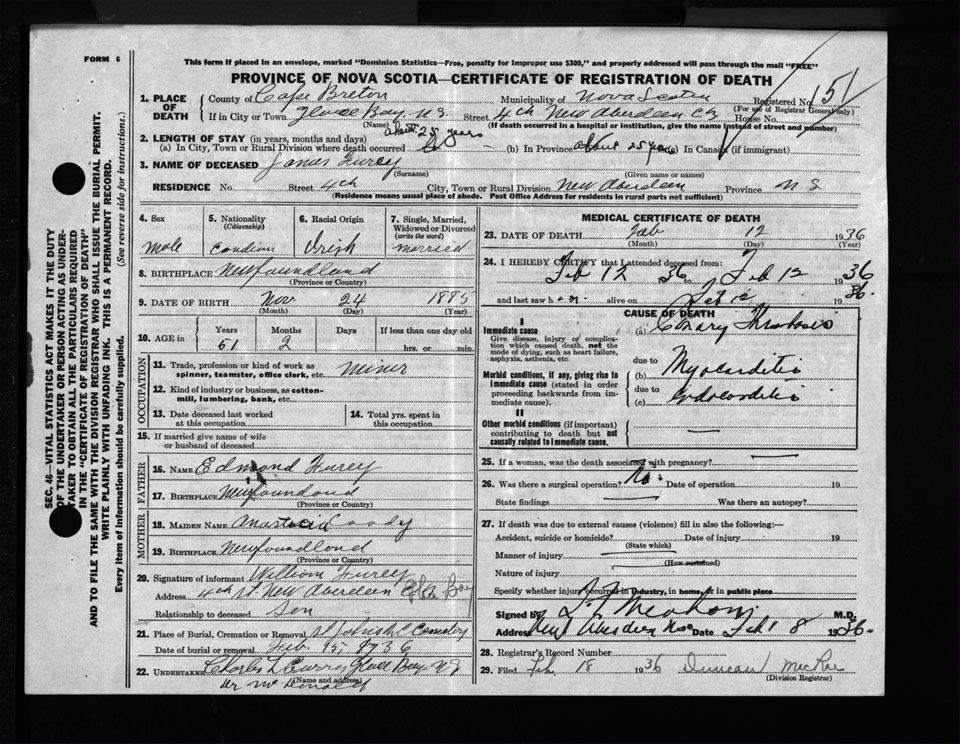 FORM 6
This form if placed in an envelope, marked "Dominion Statistics—Free, penalty for improper use $300," and properly addressed will pass through the mail "FREE"
PROVINCE OF NOVA SCOTIA—CERTIFICATE OF REGISTRATION OF DEATH
1. PLACE OF DEATH
County of Cape Breton Municipality of Nova Scotia Registered No. 151
(For use of Registrar General only)
If in City or Town Glace Bay N.S. Street 4th New Aberdeen House No.
(Name) (If death occurred in a hospital or institution, give the name instead of street and number)
2. LENGTH OF STAY (in years, months and days)
(a) In City, Town or Rural Division where death occurred about 25 years (b) In Province about 25 years (c) In Canada (if immigrant)
3. NAME OF DECEASED James Furey
(Surname) (Given name or names)
RESIDENCE No. Street 4th City, Town or Rural Division New Aberdeen Province N S
(Residence means usual place of abode. Post Office Address for residents in rural parts not sufficient)
SEC. 46—VITAL STATISTICS ACT MAKES IT THE DUTY
OF THE UNDERTAKER OR PERSON ACTING AS UNDER-
TAKER TO OBTAIN ALL THE PARTICULARS REQUIRED
IN THE "CERTIFICATE OF REGISTRATION OF DEATH"
AND TO FILE THE SAME WITH THE DIVISION REGISTRAR WHO SHALL ISSUE THE BURIAL PERMIT.
WRITE PLAINLY WITH UNFADING INK. THIS IS A PERMANENT RECORD.
Every item of information should be carefully supplied. (See reverse side for instructions.)
4. Sex
Male
5. Nationality
(Citizenship)
Candian
6. Racial Origin
Irish
7. Single, Married,
Widowed or Divorced
(write the word)
Married
8. BIRTHPLACE Newfoundland
(Province or Country)
9. DATE OF BIRTH Nov 24 1885
(Month) (Day) (Year)
10. AGE in
Years Months Days If less than one day old
51 2 hrs. or min.
OCCUPATION
11. Trade, profession or kind of work as
spinner, teamster, office clerk, etc. miner
12. Kind of industry or business, as cotton-
mill, lumbering, bank, etc.
13. Date deceased last worked
at this occupation
14. Total yrs. spent in
this occupation
15. If married give name of wife
or husband of deceased
FATHER
16. NAME Edmond Furey
17. BIRTHPLACE Newfoundland
(Province or Country)
MOTHER
18. MAIDEN NAME Anastacia Coady
19. BIRTHPLACE Newfoundland
(Province or Country)
20. Signature of informant William Furey
Address 4th St New Aberdeen Glace Bay
Relationship to deceased Son
21. Place of Burial, Cremation or Removal Cemetery
Date of burial or removal Feb. 15, 1936
22. UNDERTAKER Charles L Curry Glace Bay N S
(Name and address)
Dr McDonald
MEDICAL CERTIFICATE OF DEATH
23. DATE OF DEATH Feb 12 1936
(Month) (Day) (Year)
24. I HEREBY CERTIFY that I attended deceased from:
Feb 12 36 to Feb 12 1936
and last saw h im alive on Feb 12 1936.
CAUSE OF DEATH
I
Immediate cause
Give disease, injury or complica-
tion which caused death, not the
mode of dying, such as heart failure,
asphyxia, asthenia, etc.
(a) Thrombosis
due to
Morbid conditions, if any, giving rise to
immediate cause (stated in order
proceeding backwards from im-
mediate cause).
(b) Myocarditis
due to
(c) Endocarditis
II
Other morbid conditions (if important)
contributing to death but not
causally related to immediate cause.
25. If a woman, was the death associated with pregnancy?
26. Was there a surgical operation? No. Date of operation 19
State findings Was there an autopsy?
27. If death was due to external causes (violence) fill in also the following:—
Accident, suicide or homicide? Date of injury 19
(State which)
Manner of injury
(How sustained)
Nature of injury
Specify whether injury occurred in industry, in home, or in public place
Signed by M.D.
Address New Aberdeen Date Feb 18 1936.
28. Registrar's Record Number
29. Filed Feb 18 1936 Duncan MacRae
(Division Registrar)